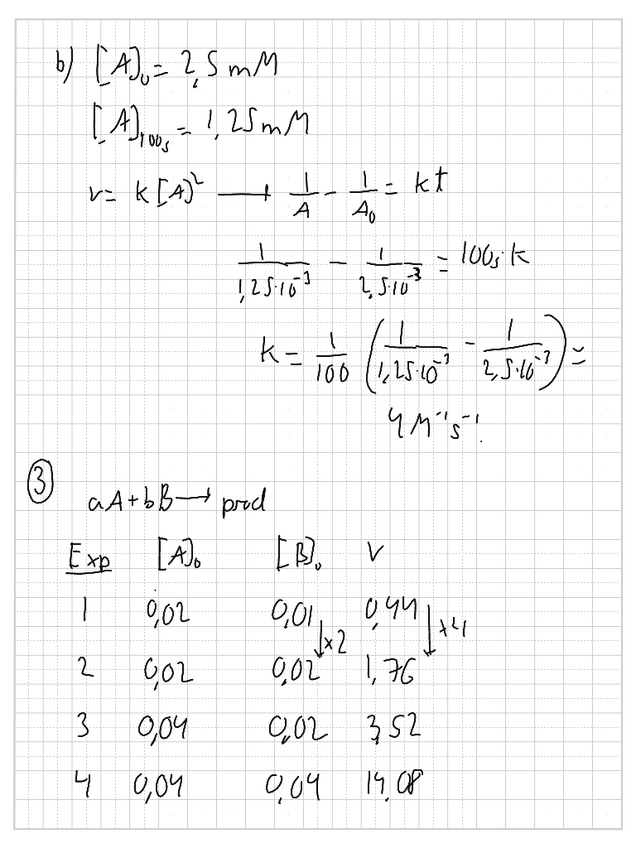 b) [A]₀ = 2,5 mM
[A]₁₀₀ₛ = 1,25 mM
v = k[A]² → 1/A - 1/A₀ = kt
1/(1,25·10⁻³) - 1/(2,5·10⁻³) = 100s·k
k = 1/100 (1/(1,25·10⁻³) - 1/(2,5·10⁻³)) ≃
4 M⁻¹s⁻¹.
③
aA + bB → prod
Exp [A]₀ [B]₀ v
1 0,02 0,01 0,44
↓×2 ↓×4
2 0,02 0,02 1,76
3 0,04 0,02 3,52
4 0,04 0,04 14,08